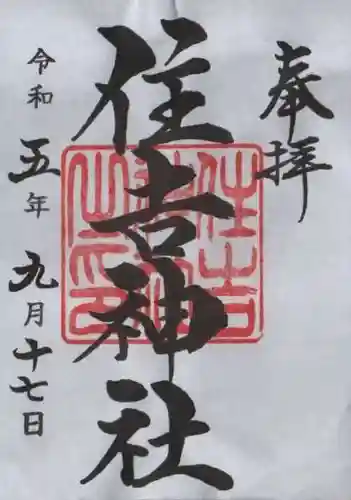 奉拝
住吉神社
令和五年九月十七日
住吉
神社
之印